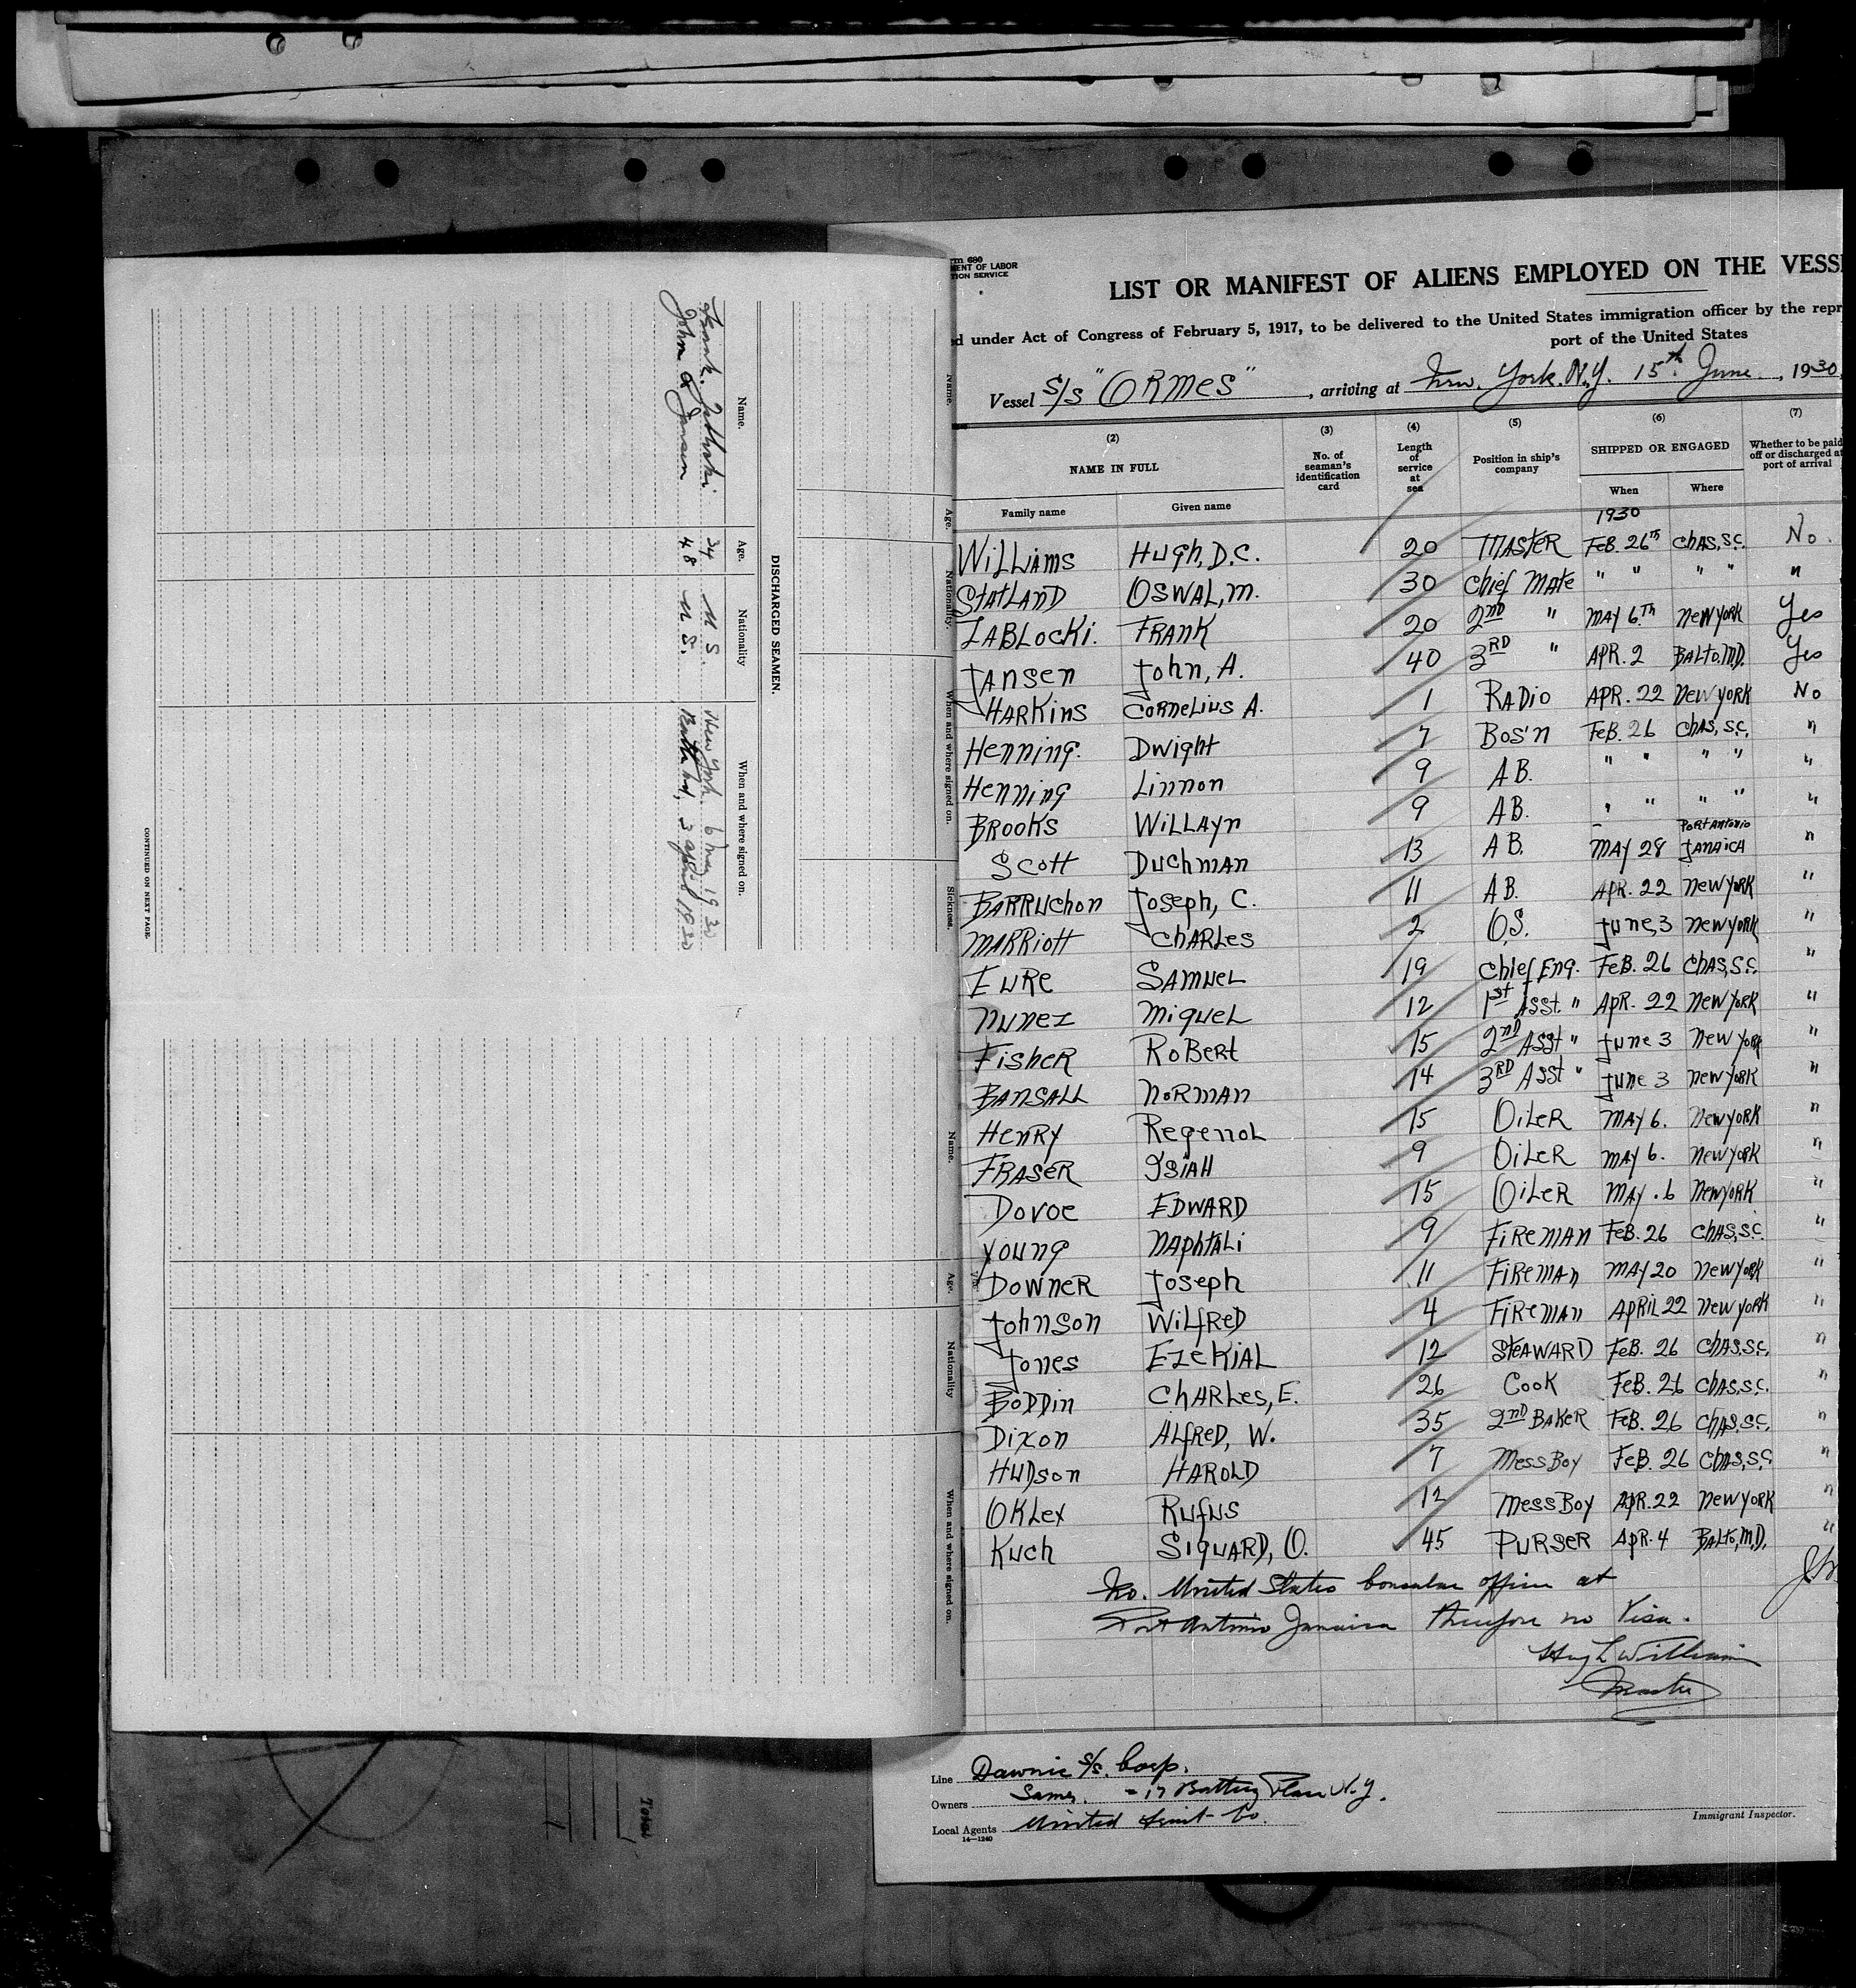 DISCHARGED SEAMEN.
Name. Age. Nationality When and where signed on.
Frank Zablocki 34 U.S. New York 6 May 1930
John A Jansen 48 U.S. Balto Md, 3 April 1930
CONTINUED ON NEXT PAGE.
Name. Age. Nationality. When and where signed on. Sickness.
Name. Age. Nationality When and where signed on.
rm 680
MENT OF LABOR
TION SERVICE
LIST OR MANIFEST OF ALIENS EMPLOYED ON THE VESS
d under Act of Congress of February 5, 1917, to be delivered to the United States immigration officer by the repr
port of the United States
Vessel S/S "ORMES", arriving at New. York. N.Y. 15th June, 1930
(2) (3) (4) (5) (6) (7)
NAME IN FULL No. of seaman's identification card Length of service at sea Position in ship's company SHIPPED OR ENGAGED Whether to be paid off or discharged at port of arrival
Family name Given name When Where
1930
WiLLiAMS HUgh, D.C. 20 MASTER FeB. 26th CHAS, S.C. No.
STATLAND OSWAL, M. 30 Chief MATe " " " " "
ZABLOCKi. FRANK 20 2nd " MAY 6.Th New YORK Yes
JANSEN John, A. 40 3RD " APR. 2 BALTO.M.D. Yes
HARKins CORNELIUS A. 1 RADIO APR. 22 New YORK No
Henning. Dwight 7 Bos'n FeB. 26 CHAS, S.C. "
Henning Linnon 9 AB. " " " " "
BROOKS WiLLAYn 9 AB. " " " " "
Scott DUCHMAN 13 AB. MAY 28 PORT ANTONIO JAMAICA "
BARRUChon Joseph, C. 11 AB. APR. 22 New YORK "
MARRIOTT CHARLES 2 O.S. June 3 New YORK "
EURe SAMUEL 19 Chief Eng. FeB. 26 CHAS, S.C. "
NUNEZ MiguEL 12 1st Asst. " APR. 22 New YORK "
FisheR RoBeRt 15 2ND Asst " June 3 New YORK "
BANSALL NORMAN 14 3RD Asst " June 3 New YORK "
HenRY RegenoL 15 OiLeR MAY 6. New YORK "
FRASeR ISIAH 9 OiLeR MAY 6. New YORK "
Dovoe EDWARD 15 OiLeR MAY. 6 New YORK "
Young NAphtALi 9 FiReMAN FeB. 26 CHAS, S.C. "
DOWNeR Joseph 11 FiReMAN MAY 20 New YORK "
Johnson WiLfReD 4 FiReMAN APRiL 22 New YORK "
Jones EZeKiAL 12 STeAWARD FeB. 26 CHAS.S.C. "
BODDin ChARLes, E. 26 Cook FeB. 26 CHAS,S.C. "
Dixon ALfReD, W. 35 2ND BAKeR FeB. 26 CHAS.S.C. "
HUDson HAROLD 7 Mess Boy FeB. 26 CHAS,S.C "
OKLex RUfUS 12 Mess Boy APR. 22 New YORK "
KUch SIGUARD, O. 45 PURSeR APR. 4 BALTO, M.D. "
No. United States Consular office at
Port Antonio Jamaica therefore no Visa.
Hugh Williams
Master
Line Dawnic S/S. Corp.
Owners Same. - 17 Battery Place N.Y.
Local Agents United Fruit Co.
14—1240
Immigrant Inspector.
Total